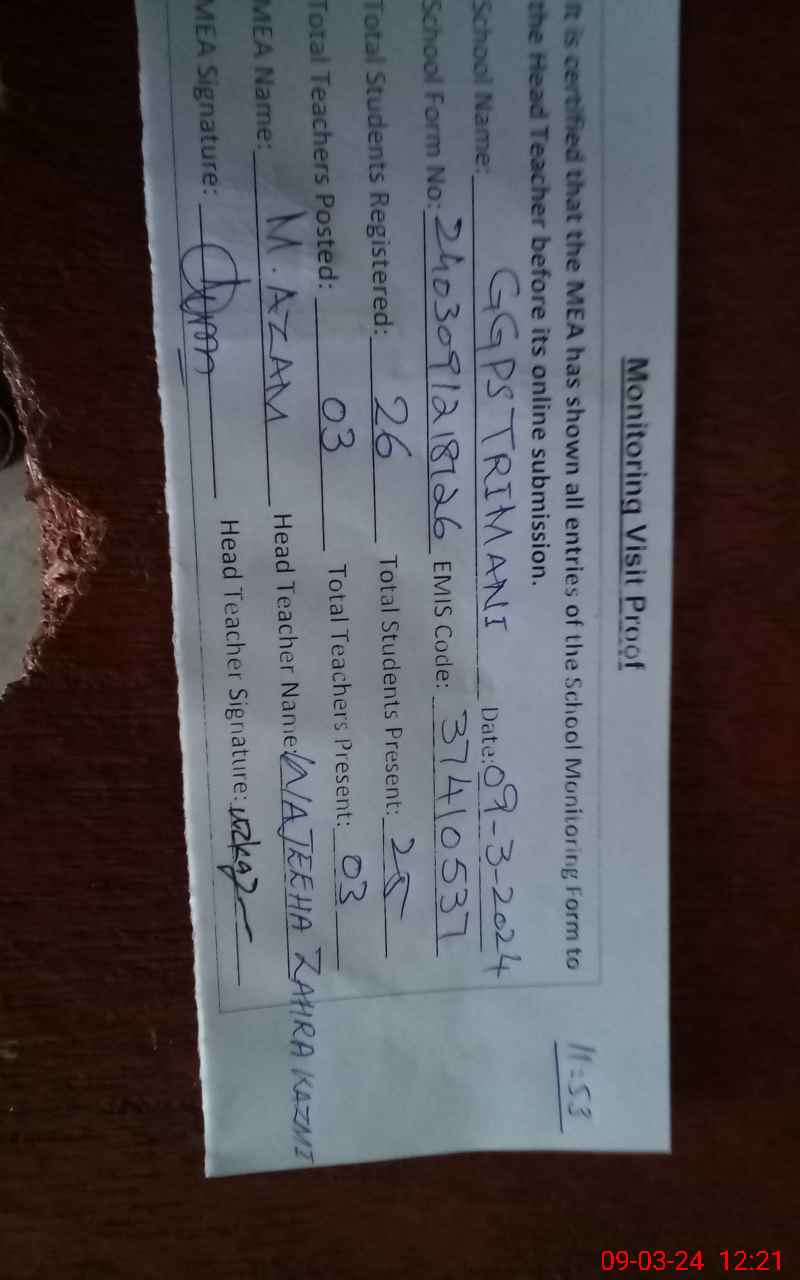 11:53
Monitoring Visit Proof
It is certified that the MEA has shown all entries of the School Monitoring Form to
the Head Teacher before its online submission.
School Name: GGPS TRIMANI Date: 09-3-2024
School Form No: 2403091218726 EMIS Code: 37410537
Total Students Registered: 26 Total Students Present: 25
Total Teachers Posted: 03 Total Teachers Present: 03
MEA Name: M. AZAM Head Teacher Name: WAJEEHA ZAHRA KAZMI
MEA Signature: Head Teacher Signature:
09-03-24 12:21